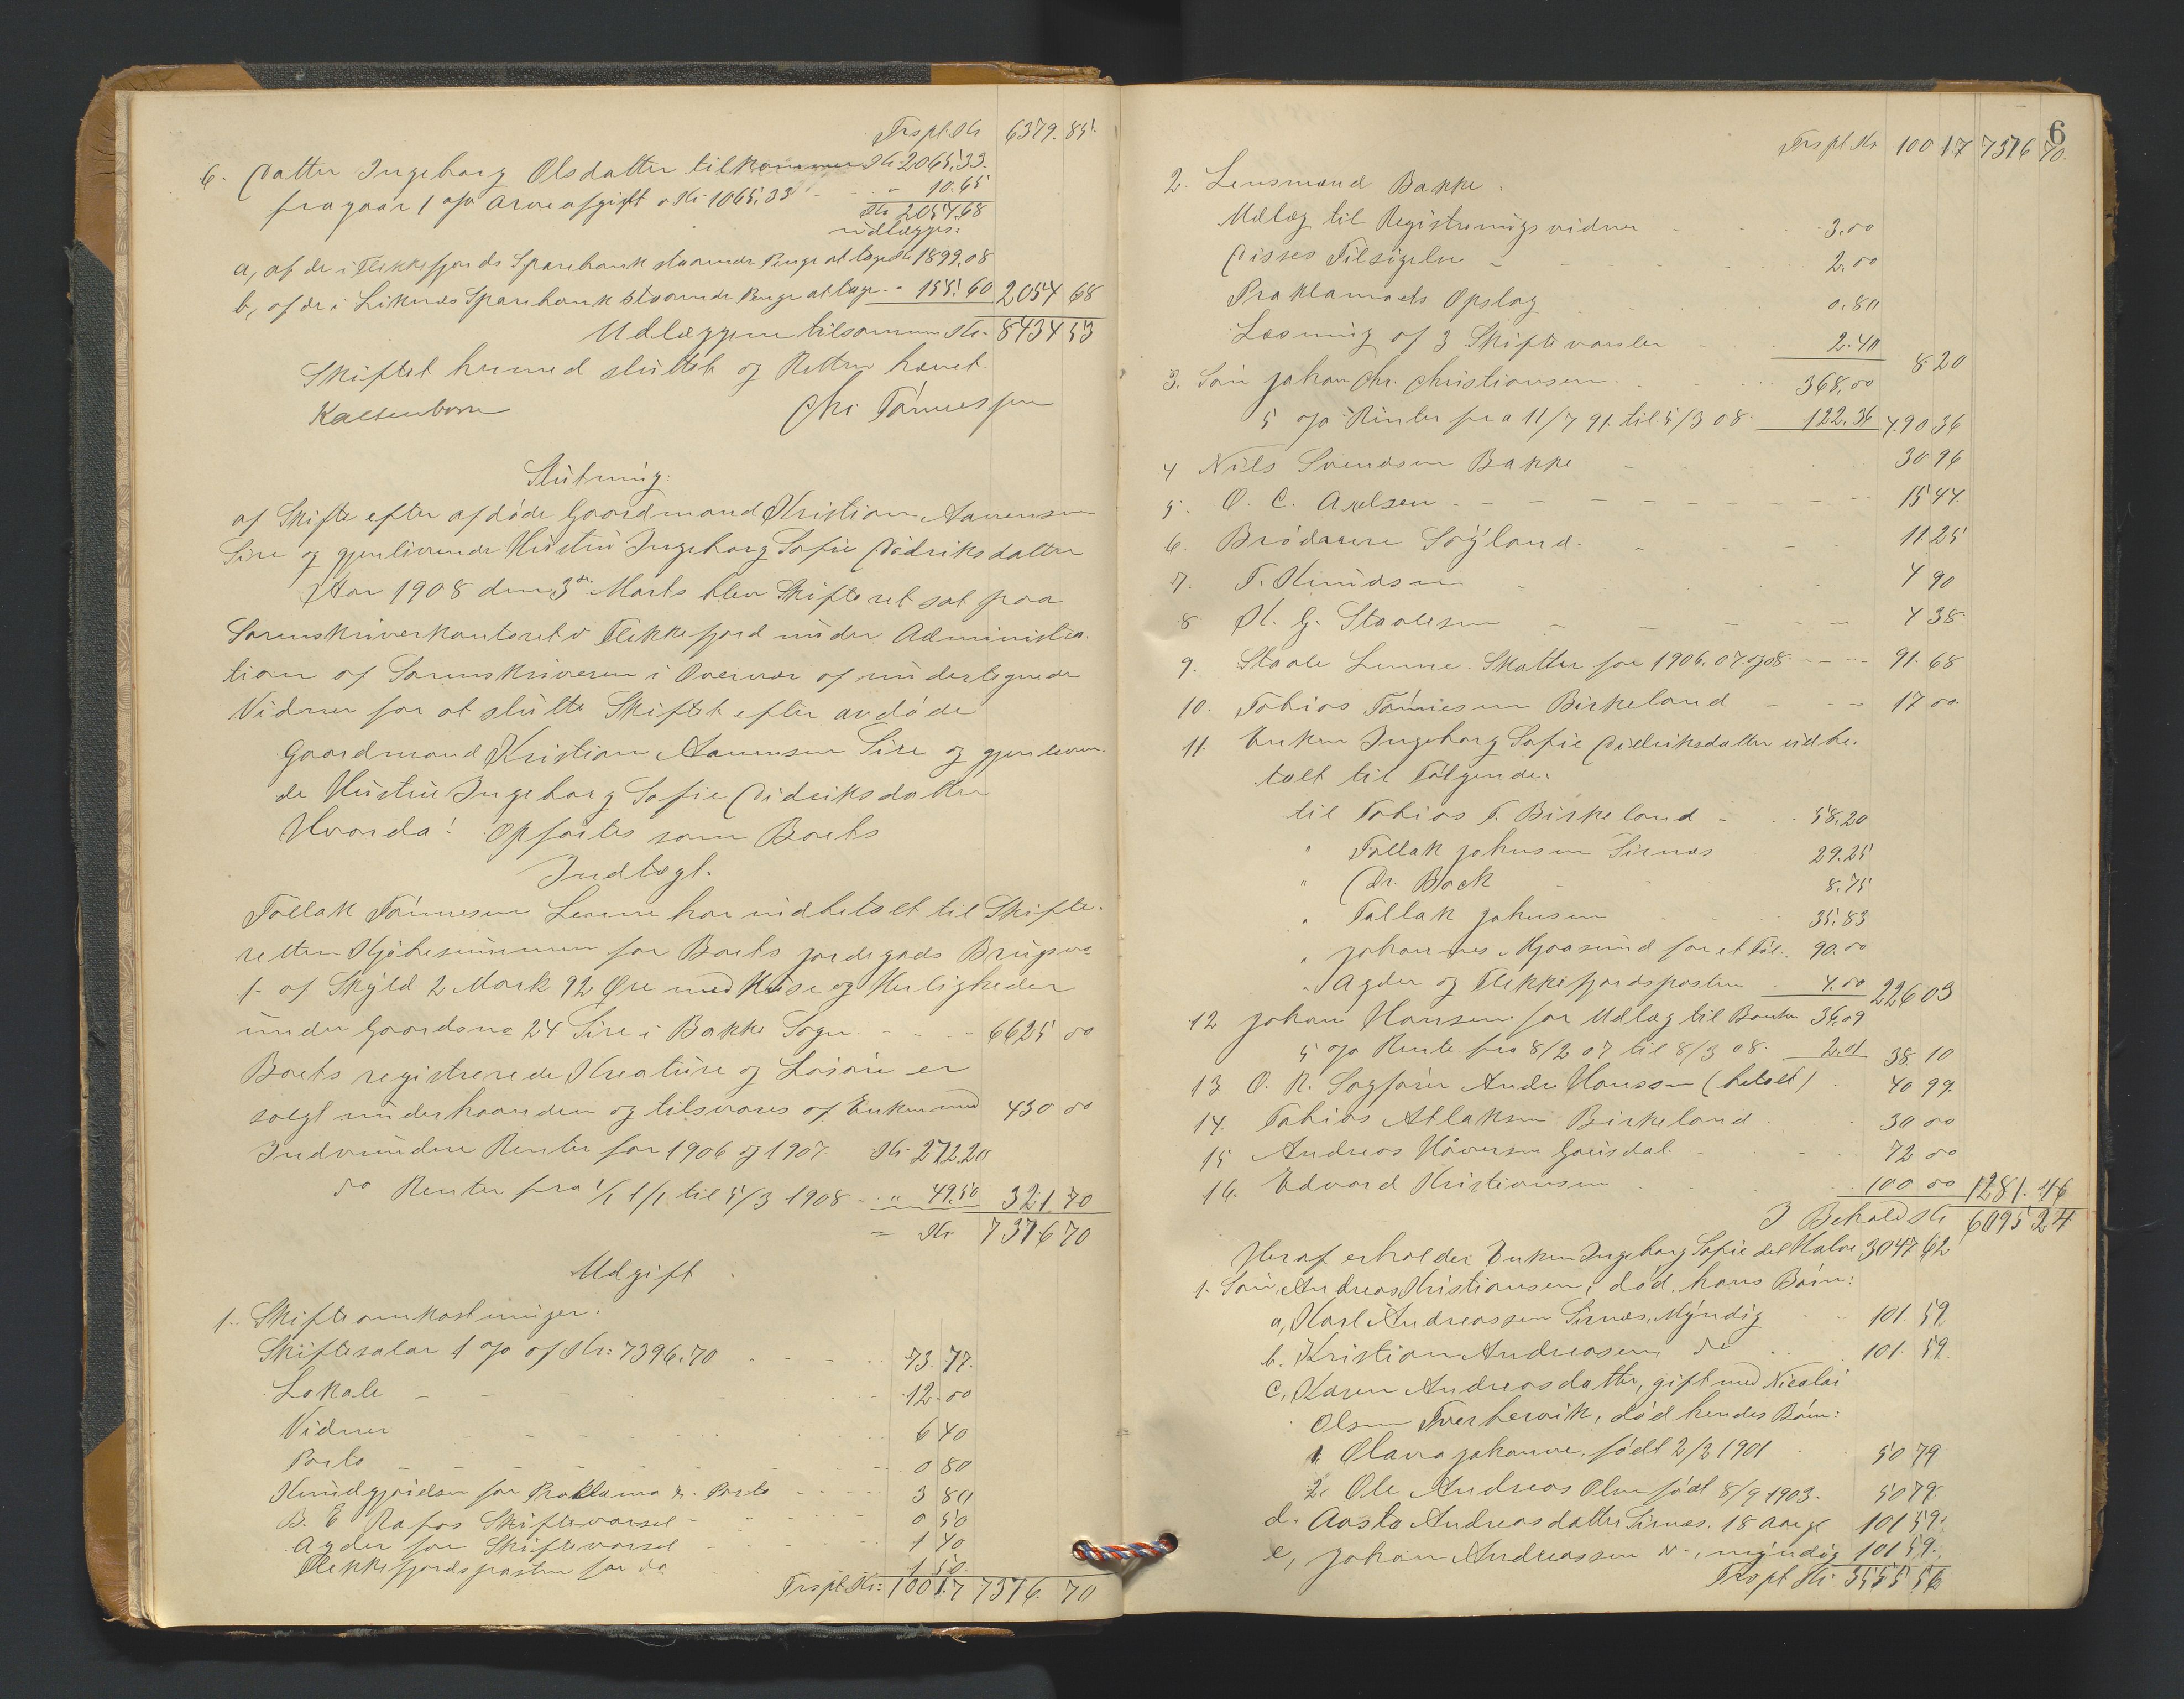 Trspt. Kr. 6379.85.
6. Datter Ingeborg Olsdatter tilkommer Kr. 2065.33.
fragaar 1 o/o Arveafgift o Kr. 1065.33 - - " 10.65
Kr. 2054.68
udlægges:
a, af de i Flekkefjords Sparebank staaende Penge at tage Kr. 1899.08
b, af de i Liknes Sparebank staaende Penge at tage - " 155.60 2054 68
Udlæggene tilsammen Kr. 8434 53
Skiftet hermed sluttet og Retten hævet.
Kaltenborn Chr. Tönnessen
Slutning:
af Skifte efter afdöde Gaardmand Kristian Aanensen
Sire og gjenlevende Hustru Ingeborg Sofie Didriksdatter
Aar 1908 den 3die Marts blev Skifteret sat paa
Sorenskriverkontoret i Flekkefjord under Administra-
tion af Sorenskriveren i Overvær af undertegnede
Vidner for at slutte Skiftet efter avdöde
Gaardmand Kristian Aanensen Sire og gjenleven-
de Hustru Ingeborg Sofie Didriksdatter
Hvorda: Opförtes som Boets
Indtægt.
Tollak Tönnesen Lenne har indbetalt til Skifte-
retten Kjöbesummen for Boets Jordegods Brugsno
1. af Skyld 2 Mark 92 Øre med Huse og Herligheder
under Gaardsno 24 Sire i Bakke Sogn - - - 6625 00
Boets registrerede Kreature og Lösöre er
solgt underhaanden og tilsvares af Enken med 430 00
Indvundne Renter for 1906 og 1907 Kr. 272.20
do Renter fra 1/1 til 5/3 1908 - " 49.50 321.70
= Kr. 7376 70
Udgift.
1. Skifteomkostninger.
Skiftesalær 1 o/o af Kr: 7396.70 - - - 73.77.
Lokale - - - 12.00
Vidner - - - 6 40
Porto - - - 0 80
Kundgjörelsen for Proklama & Porto - - - 3 80
B. E. Rafos Skiftevarsel - - - 0 50
Agder for Skiftevarsel - - - 1 40
Flekkefjordsposten for do 1.50.
Trspt. Kr: 100 17 7376. 70
6
Trspt Kr 100 17 7376 70.
2. Lensmand Bakke.
Udlæg til Registreringsvidner - - - 3.00
Disses Tilsigelse - - - 2.00
Proklamaets Opslag - - 0.80
Læsning af 3 Skiftevarsler - 2.40 8 20
3. Sön Johan Chr. Christiansen - - 368,00
5 o/o Renter fra 11/7 91. til 5/3 08. 122.36 490 36
4 Nils Svendsen Bakke - - 30 96
5. O. C. Axelsen - - - 15 44.
6. Brödrene Söyland. - - 11 25
7. T. Knudsen - - 4 90
8. K. G. Staalesen - - - 4 38
9. Staale Lenne. Skatter for 1906. 07 og 08 - - - 91. 68
10. Tobias Tönnesen Birkeland - - - 17 00.
11. Enken Ingeborg Sofie Didriksdatter udbe-
talt til Fölgende:
til Tobias T. Birkeland - - 58.20
" Tollak Johnsen Sirnes 29.25
" Dr. Bock - 8.75
" Tollak Johnsen - 35.83
" Johannes Mjaasund for et Föl. 90.00
" Agder og Flekkefjordsposten - 4.00 226 03
12 Johan Hansen for Udlæg til Banken 36.09
5 o/o Rente fra 8/2 07 til 8/3 08. 2.01 38. 10
13 O. R. Sagförer Andr. Hanssen (betalt) - 40 99.
14. Tobias Atlaksen Birkeland - - - 30 00
15 Andreas Håversen - - - 72 00
16. Edvard Kristiansen - - - 100 00 1281. 46
I Behold Kr 6095 24
Heraf erholder Enken Ingeborg Sofie det Halve 3047 62
1. Sön, Andreas Kristiansen, död, hans Börn:
a, Karl Andreassen Sirnes, Myndig - - 101. 59
b. Kristian Andreasen, do - 101. 59.
c, Karen Andreasdatter, gift med Nicolai
Olsen, död hendes Börn:
1. Olava Johanne, födt 2/2 1901 - 50 79
2. Ole Andreas Olsen födt 8/9 1903. 50 79.
d. Aasta Andreasdatter Sirnes, 18 Aar gl 101 59.
e, Johan Andreassen N-, myndig 101 59.
Trspt Kr. 3555 56